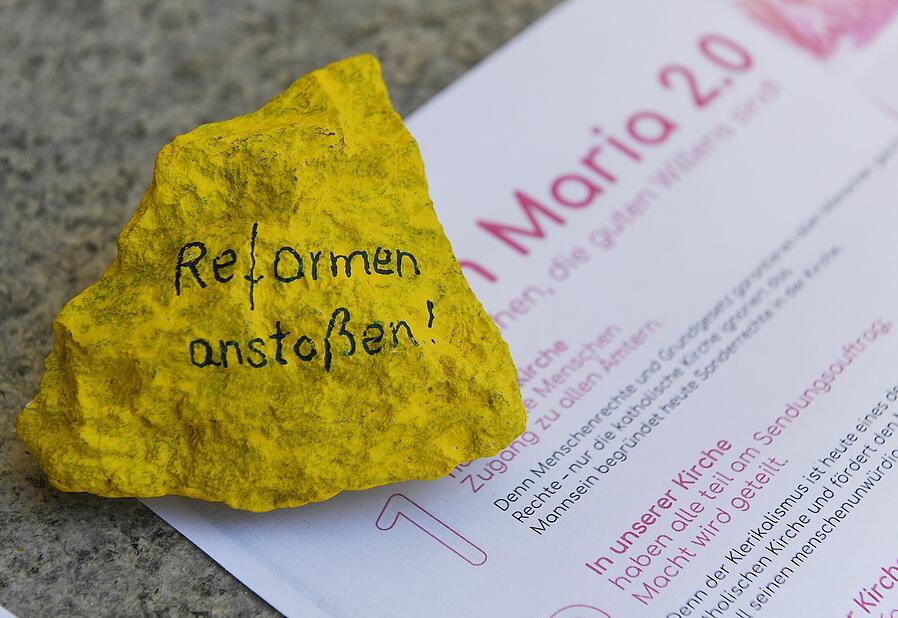 Reformen
anstoßen!
Maria 2.0
die guten Willens sind
Kirche
Menschen
Zugang zu allen Ämtern.
Denn Menschenrechte und Grundgesetz garantieren allen Menschen
Rechte – nur die katholische Kirche ignoriert das.
Mannsein begründet heute Sonderrechte in der Kirche.
1
In unserer Kirche
haben alle teil am Sendungsauftrag;
Macht wird geteilt.
Denn der Klerikalismus ist heute eines
Kirche und fördert den
seinen